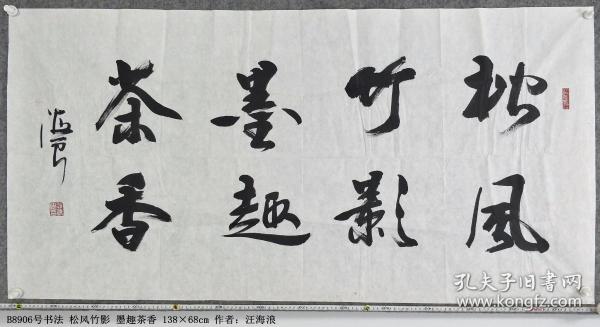 松風
竹影
墨趣
茶香
海浪
孔夫子旧书网
www.kongfz.com
B8906号书法 松风竹影 墨趣茶香 138×68cm 作者：汪海浪